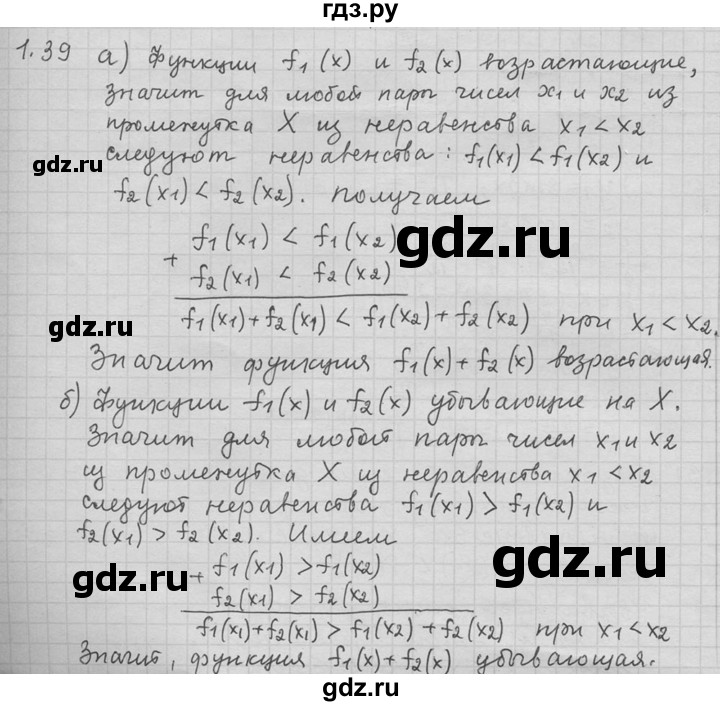 гдз.ру
1.39 а) Функции f₁(x) и f₂(x) возрастающие,
значит для любой пары чисел x₁ и x₂ из
промежутка X из неравенства x₁ < x₂
следуют неравенства: f₁(x₁) < f₁(x₂) и
f₂(x₁) < f₂(x₂). Получаем
f₁(x₁) < f₁(x₂)
gdz.ru
+ f₂(x₁) < f₂(x₂)
gdz.ru
f₁(x₁) + f₂(x₁) < f₁(x₂) + f₂(x₂) при x₁ < x₂.
Значит функция f₁(x) + f₂(x) возрастающая.
б) Функции f₁(x) и f₂(x) убывающие на X.
Значит для любой пары чисел x₁ и x₂
из промежутка X из неравенства x₁ < x₂
следуют неравенства f₁(x₁) > f₁(x₂) и
f₂(x₁) > f₂(x₂). Имеем
gdz.ru
+ f₁(x₁) > f₁(x₂)
gdz.ru
f₂(x₁) > f₂(x₂)
f₁(x₁) + f₂(x₁) > f₁(x₂) + f₂(x₂) при x₁ < x₂
Значит, функция f₁(x) + f₂(x) убывающая.
gdz.ru